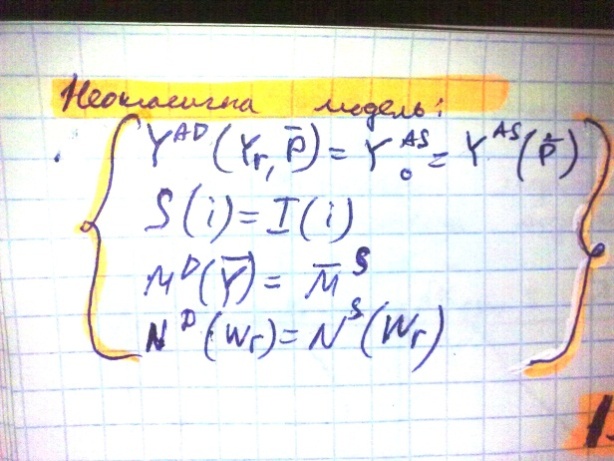 Неокласична модель:
Y^AD (Y_r, P̄) = Y_0^AS = Y^AS (P̄)
S(i) = I(i)
M^D (Ȳ) = M̄^S
N^D (W_r) = N^S (W_r)